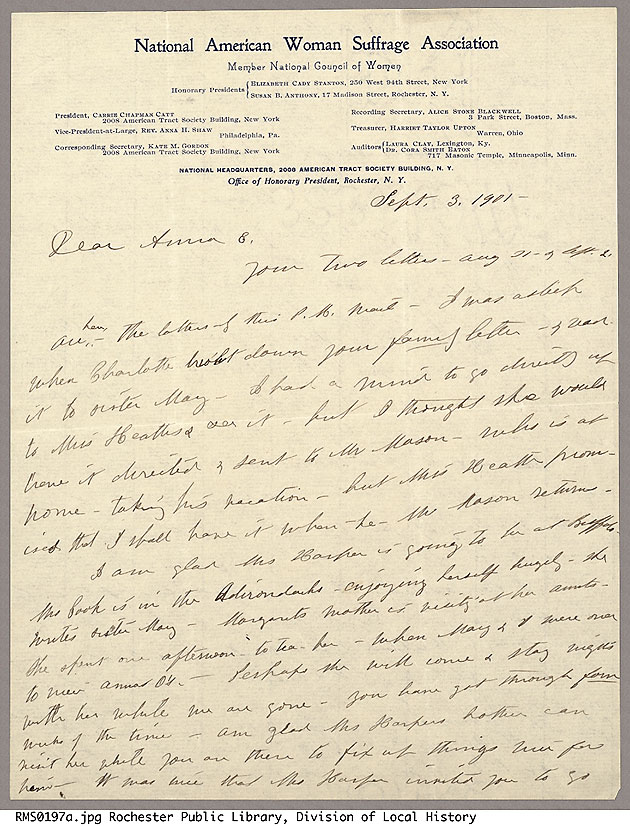 National American Woman Suffrage Association
Member National Council of Women
Honorary Presidents { ELIZABETH CADY STANTON, 250 West 94th Street, New York
SUSAN B. ANTHONY, 17 Madison Street, Rochester, N. Y.
President, CARRIE CHAPMAN CATT
2008 American Tract Society Building, New York
Vice-President-at-Large, REV. ANNA H. SHAW
Philadelphia, Pa.
Corresponding Secretary, KATE M. GORDON
2008 American Tract Society Building, New York
Recording Secretary, ALICE STONE BLACKWELL
3 Park Street, Boston, Mass.
Treasurer, HARRIET TAYLOR UPTON
Warren, Ohio
Auditors { LAURA CLAY, Lexington, Ky.
DR. CORA SMITH EATON
717 Masonic Temple, Minneapolis, Minn.
NATIONAL HEADQUARTERS, 2008 AMERICAN TRACT SOCIETY BUILDING, N. Y.
Office of Honorary President, Rochester, N. Y.
Sept. 3. 1901 -
Dear Anna O.
Your two letters - Aug 31 - & Sept. 2.
are here, - the latter of this P. M. mail - I was asleep
when Charlotte down your letter - & read
it to sister Mary - I had a mind to go directly up
to Miss - & see it - but I thought she would
have it directed & sent to Mr Mason - who is at
home - taking his vacation - but Miss Heath prom-
ised that I shall have it when he - Mr Mason return -
I am glad Mrs Harper is going to be at Buffalo.
Mrs is in the Adirondacks - enjoying herself hugely - she
writes sister Mary - Margarets mother is visiting at her aunts -
she spent one afternoon - to tea - here - when Mary & I were over
to - Perhaps she will come & stay nights
with her while we are gone - You have got through
of the time - am glad Mrs Harpers brother can
visit her while you are there to fix up things nice for
him - It was nice that Mrs Harper invited you to go
RMS0197a.jpg Rochester Public Library, Division of Local History